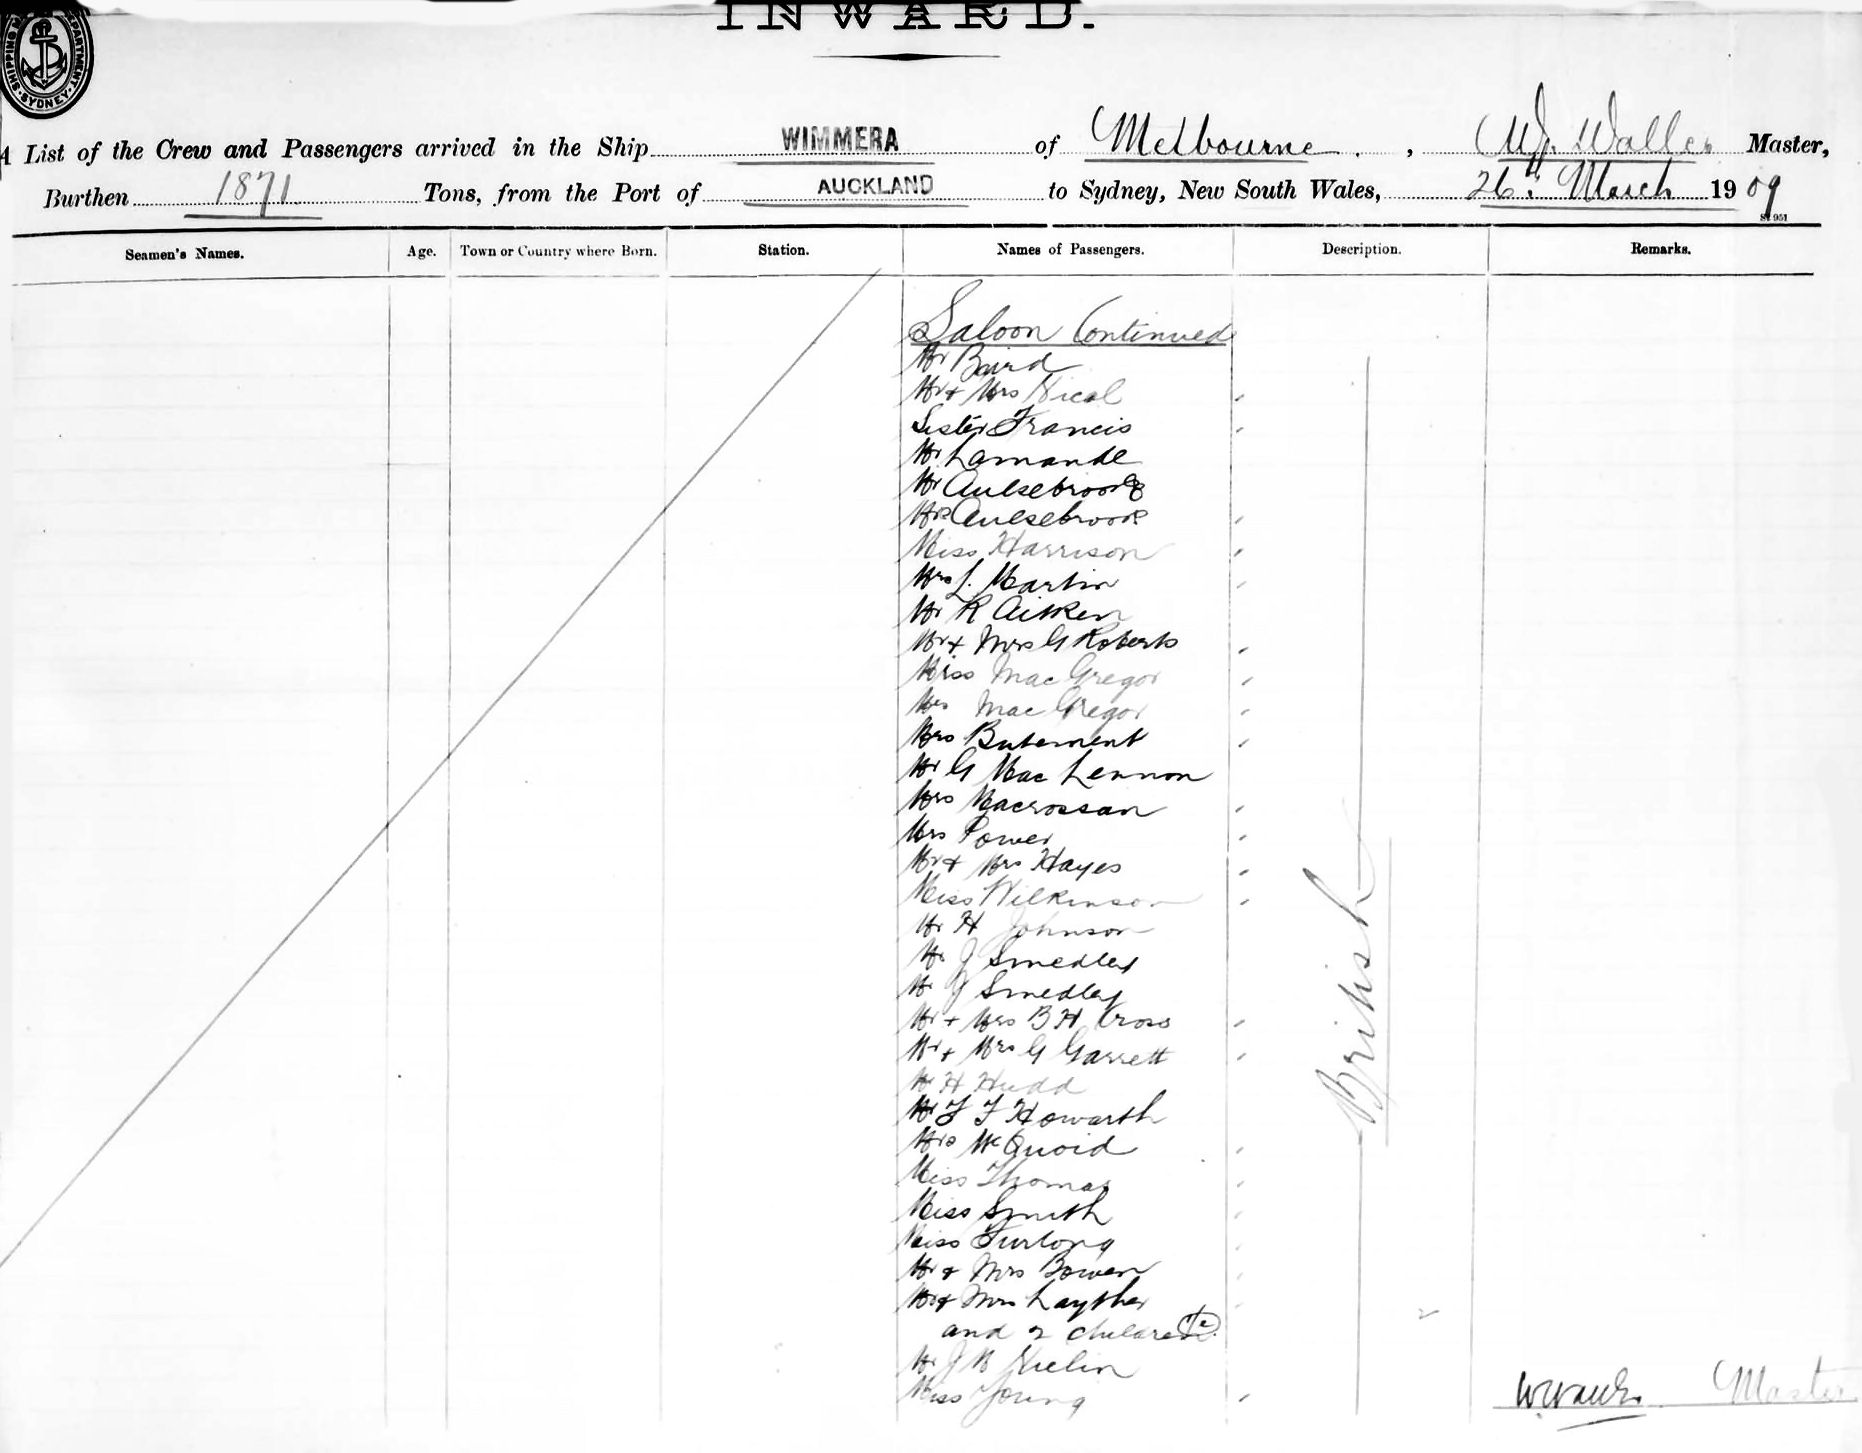 INWARD.
SHIPPING DEPARTMENT SYDNEY
A List of the Crew and Passengers arrived in the Ship WIMMERA of Melbourne, Master,
Burthen 1871 Tons, from the Port of AUCKLAND to Sydney, New South Wales, 26th March 1909
Seamen's Names. Age. Town or Country where Born. Station. Names of Passengers. Description. Remarks.
Saloon Continued
Mr Baird
Mr + Mrs Nical
Sister Francis
Mr Lamande
Mr Aulsebrook
Mrs Aulsebrook
Miss Harrison
Mrs L. Martin
Mr R Aitken
Mr + Mrs G Roberts
Miss MacGregor
Mrs MacGregor
Mrs Butement
Mr G MacLennon
Mrs Macrossan
Mrs Power
Mr + Mrs Hayes
Miss Wilkinson
Mr H Johnson
Mr J Smedley
Mr J Smedley
Mr + Mrs B H Cross
Mr + Mrs G Garrett
Mr H Hudd
Mr F F Howarth
Mrs McQuoid
Miss Thomas
Miss Smith
Miss Furlong
Mr + Mrs Bowen
Mr + Mrs Layther
and 2 children
Mr J
Miss Young
British
Master